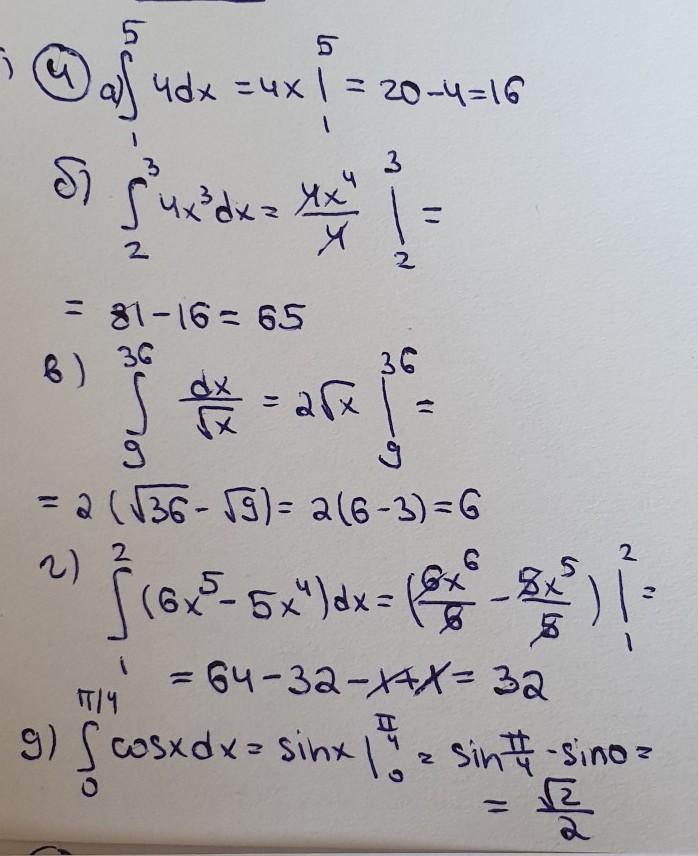 4 а) ∫₁⁵ 4dx = 4x |₁⁵ = 20-4=16
б) ∫₂³ 4x³dx = 4x⁴/4 |₂³ =
= 81-16 = 65
в) ∫₉³⁶ dx/√x = 2√x |₉³⁶ =
= 2(√36 - √9) = 2(6-3) = 6
г) ∫₁² (6x⁵ - 5x⁴)dx = (6x⁶/6 - 5x⁵/5) |₁² =
= 64-32-1+1 = 32
д) ∫₀^π/4 cosxdx = sinx |₀^π/4 = sin π/4 - sin0 =
= √2/2